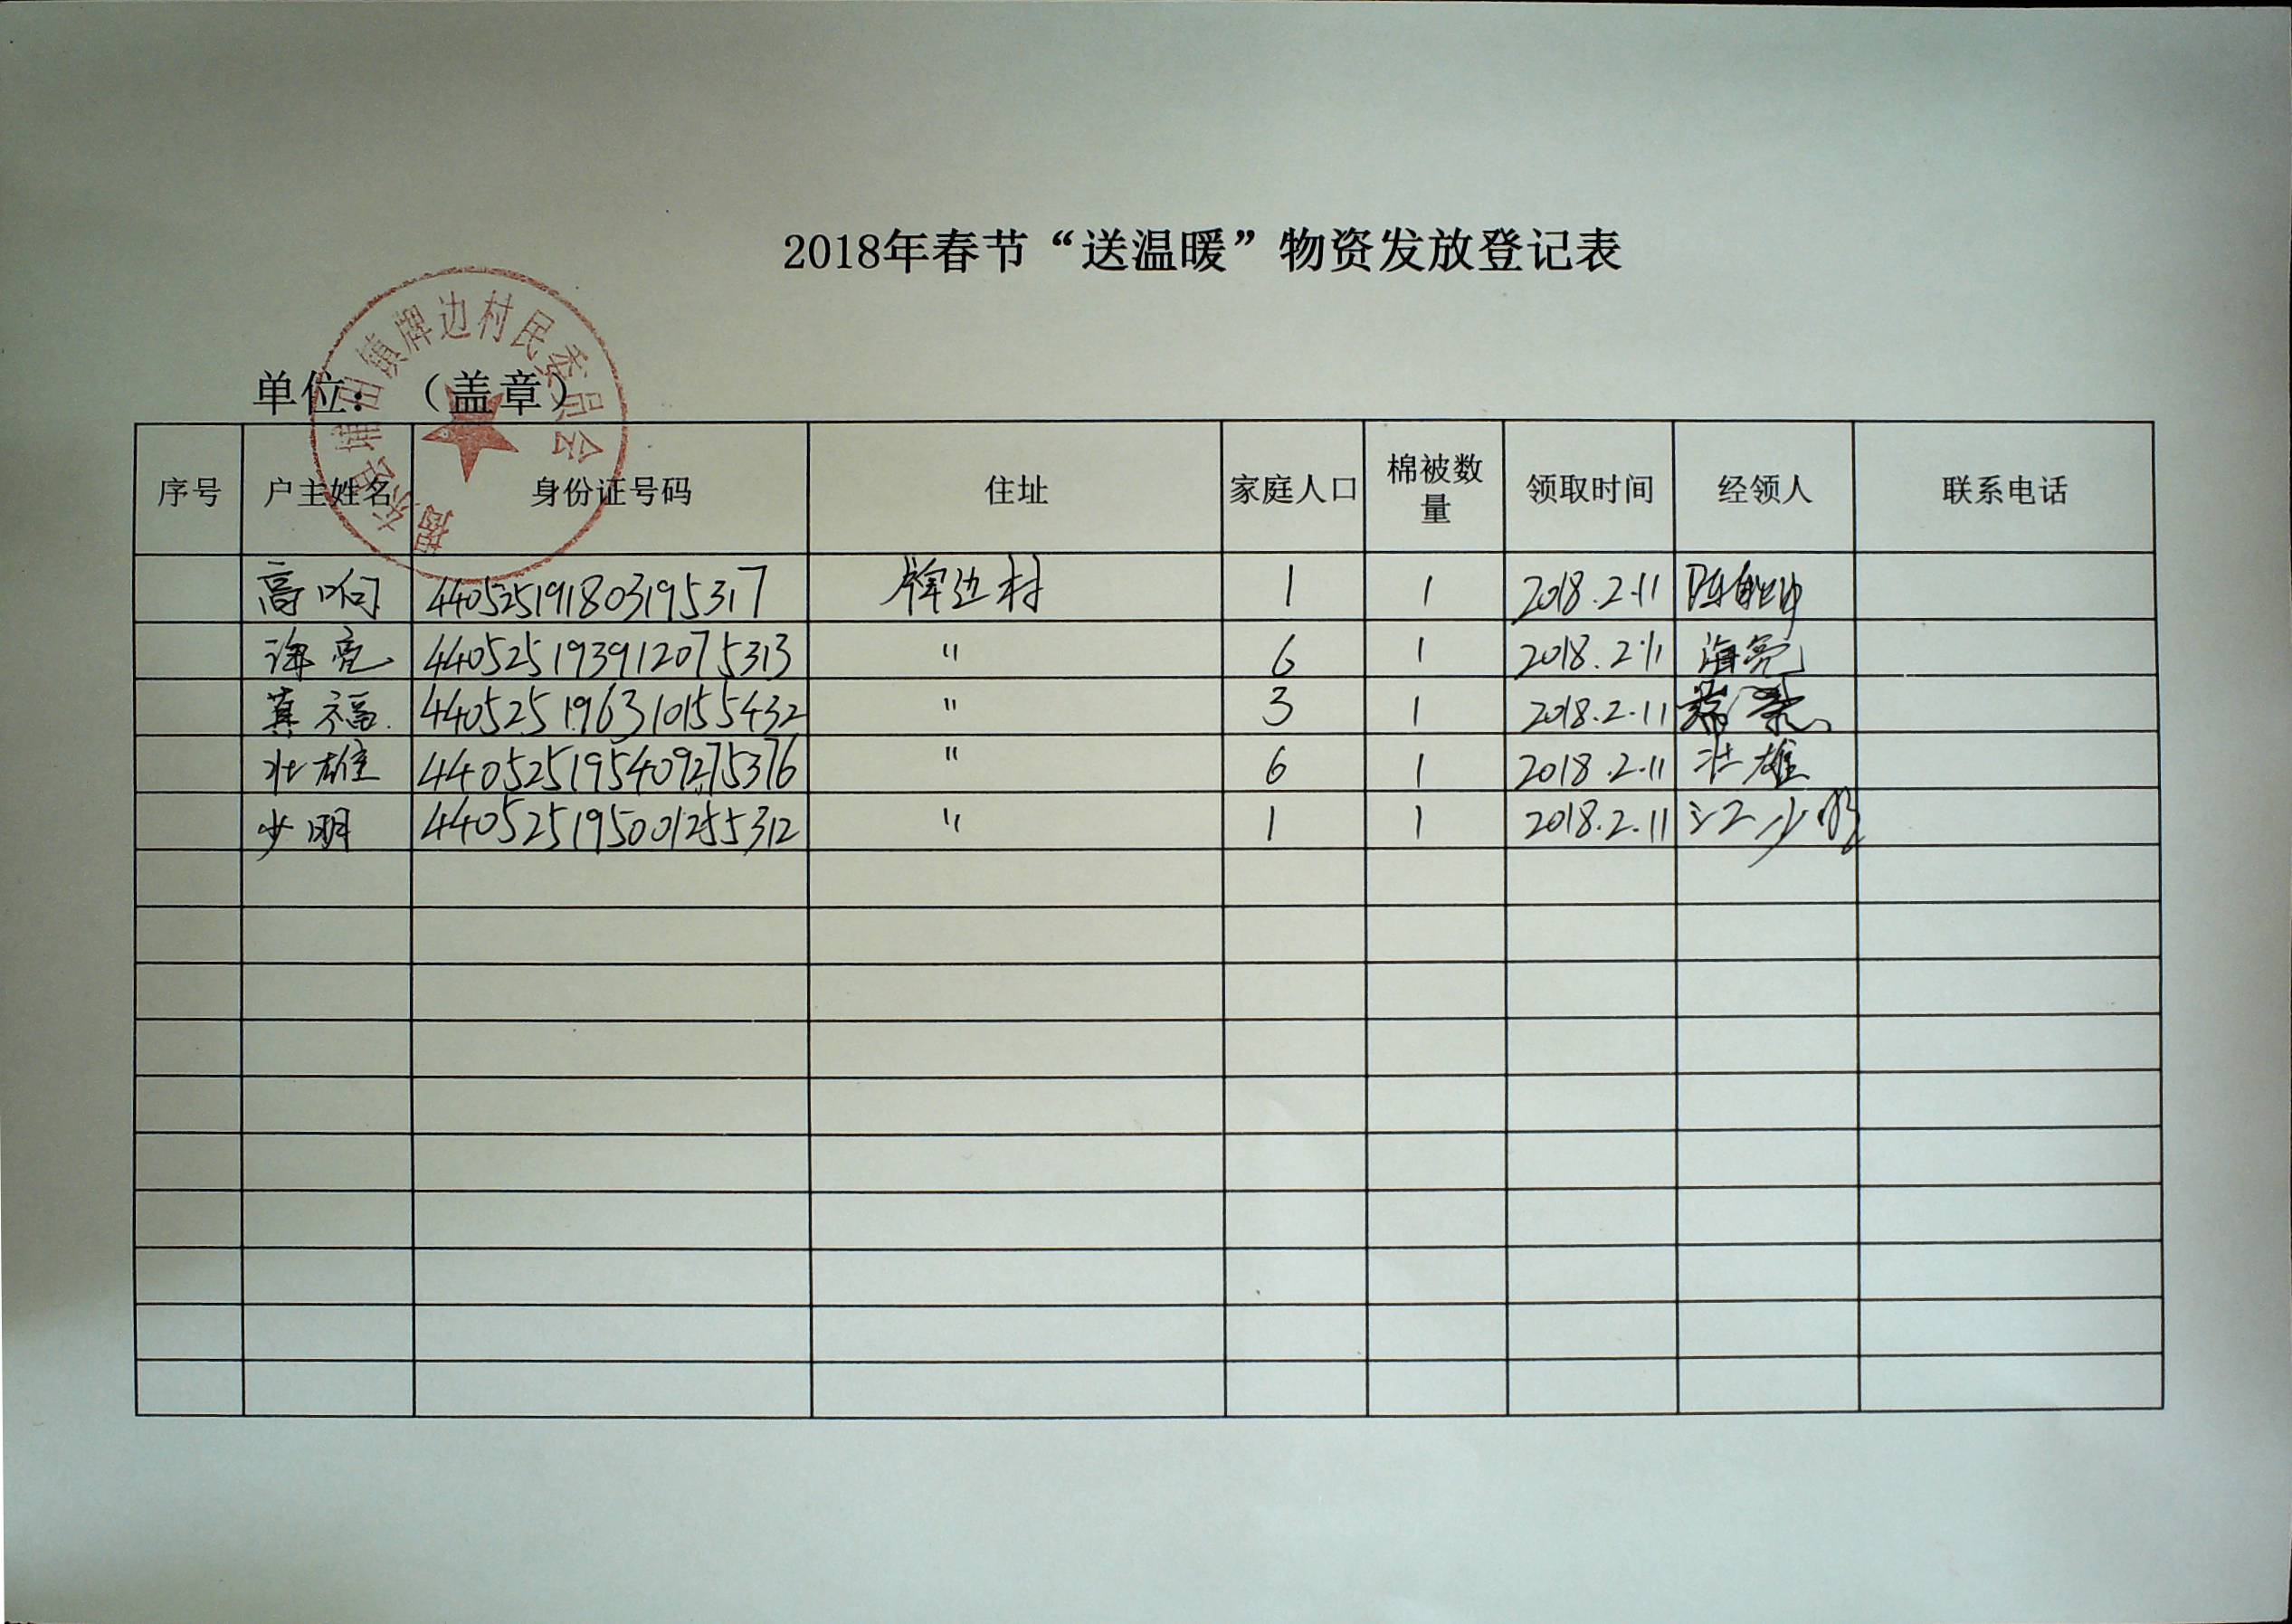 2018年春节“送温暖”物资发放登记表
揭东县埔田镇牌边村民委员会
单位：（盖章）
序号 户主姓名 身份证号码 住址 家庭人口 棉被数量 领取时间 经领人 联系电话
高响 440525191803195317 牌边村 1 1 2018.2.11
海亮 440525193912075313 " 6 1 2018.2.11 海亮
440525196310155432 " 3 1 2018.2.11
壮雄 440525195409275376 " 6 1 2018.2.11 壮雄
少明 440525195001255312 " 1 1 2018.2.11 江少明